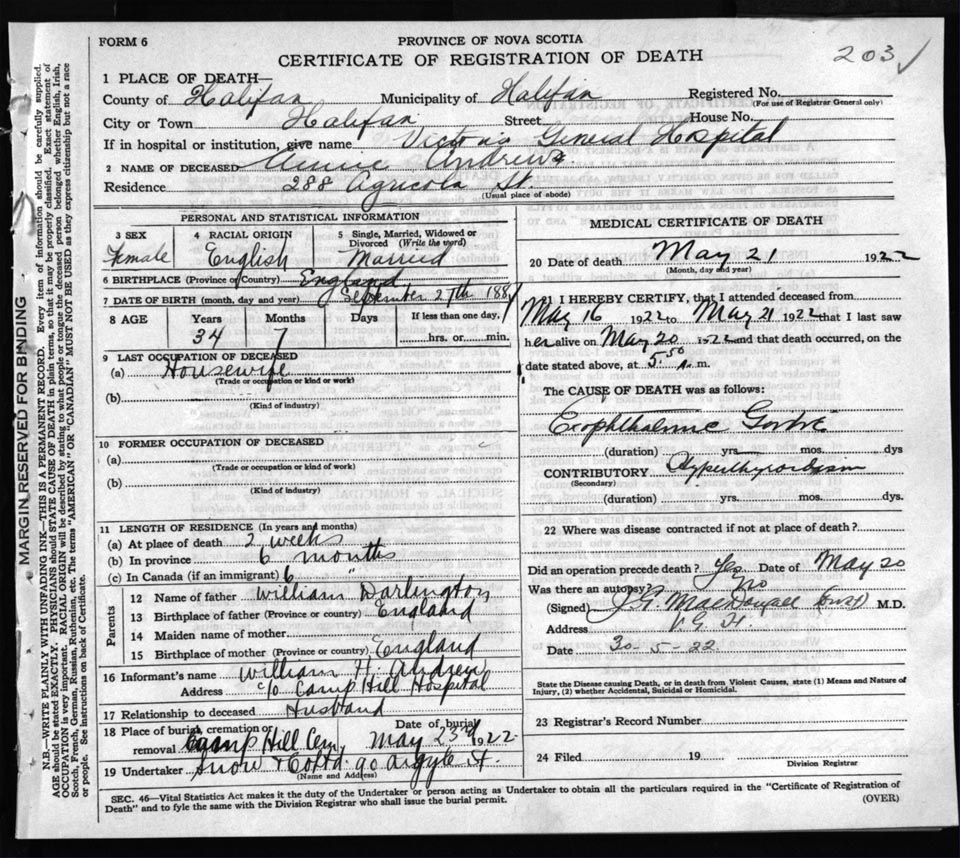 FORM 6
PROVINCE OF NOVA SCOTIA
CERTIFICATE OF REGISTRATION OF DEATH
203 ✓
1 PLACE OF DEATH—
County of Halifax Municipality of Halifax Registered No.
(For use of Registrar General only)
City or Town Halifax Street House No.
If in hospital or institution, give name Victoria General Hospital
2 NAME OF DECEASED Annie Andrews
Residence 288 Agricola St.
(Usual place of abode)
PERSONAL AND STATISTICAL INFORMATION
3 SEX 4 RACIAL ORIGIN 5 Single, Married, Widowed or Divorced (Write the word)
Female English Married
6 BIRTHPLACE (Province or Country) England
7 DATE OF BIRTH (month, day and year) September 27th 1887
8 AGE Years Months Days If less than one day,
34 7 hrs. or min.
9 LAST OCCUPATION OF DECEASED
(a) Housewife
(Trade or occupation or kind of work)
(b)
(Kind of industry)
10 FORMER OCCUPATION OF DECEASED
(a)
(Trade or occupation or kind of work)
(b)
(Kind of industry)
11 LENGTH OF RESIDENCE (In years and months)
(a) At place of death 2 weeks
(b) In province 6 months
(c) In Canada (if an immigrant) 6 "
Parents
12 Name of father William Darlington
13 Birthplace of father (Province or country) England
14 Maiden name of mother
15 Birthplace of mother (Province or country) England
16 Informant's name William H. Andrew
Address c/o Camp Hill Hospital
17 Relationship to deceased Husband
18 Place of burial, cremation or removal Camp Hill Cem, Date of burial May 23rd 1922
19 Undertaker Snow & Co Ltd. 90 Argyle St.
(Name and Address)
MEDICAL CERTIFICATE OF DEATH
20 Date of death May 21 1922
(Month, day and year)
21 I HEREBY CERTIFY, that I attended deceased from
May 16 1922 to May 21 1922 that I last saw
her alive on May 20 1922 and that death occurred, on the
date stated above, at 5.50 A. m.
The CAUSE OF DEATH was as follows:
Exophthalmic Goitre
(duration) yrs. mos. dys
CONTRIBUTORY Hyperthyroidism
(Secondary)
(duration) yrs. mos. dys.
22 Where was disease contracted if not at place of death?
Did an operation precede death? Yes Date of May 20
Was there an autopsy? No
(Signed) MacDougall M.D.
Address V. G. H.
Date 30-5-22.
State the Disease causing Death, or in death from Violent Causes, state (1) Means and Nature of
Injury, (2) whether Accidental, Suicidal or Homicidal.
23 Registrar's Record Number
24 Filed 19
Division Registrar
SEC. 46—Vital Statistics Act makes it the duty of the Undertaker or person acting as Undertaker to obtain all the particulars required in the "Certificate of Registration of
Death" and to fyle the same with the Division Registrar who shall issue the burial permit.
(OVER)
MARGIN RESERVED FOR BINDING
N.B.—WRITE PLAINLY WITH UNFADING INK—THIS IS A PERMANENT RECORD. Every item of information should be carefully supplied.
AGE should be stated EXACTLY. PHYSICIANS should STATE CAUSE OF DEATH in plain terms, so that it may be properly classified. Exact statement of
OCCUPATION is very important. RACIAL ORIGIN will be described by stating to what people or tongue the deceased person belonged whether English, Irish,
Scotch, French, German, Russian, Ruthenian, etc. The terms "AMERICAN" OR "CANADIAN" MUST NOT BE USED as they express citizenship but not a race
or people. See Instructions on back of Certificate.